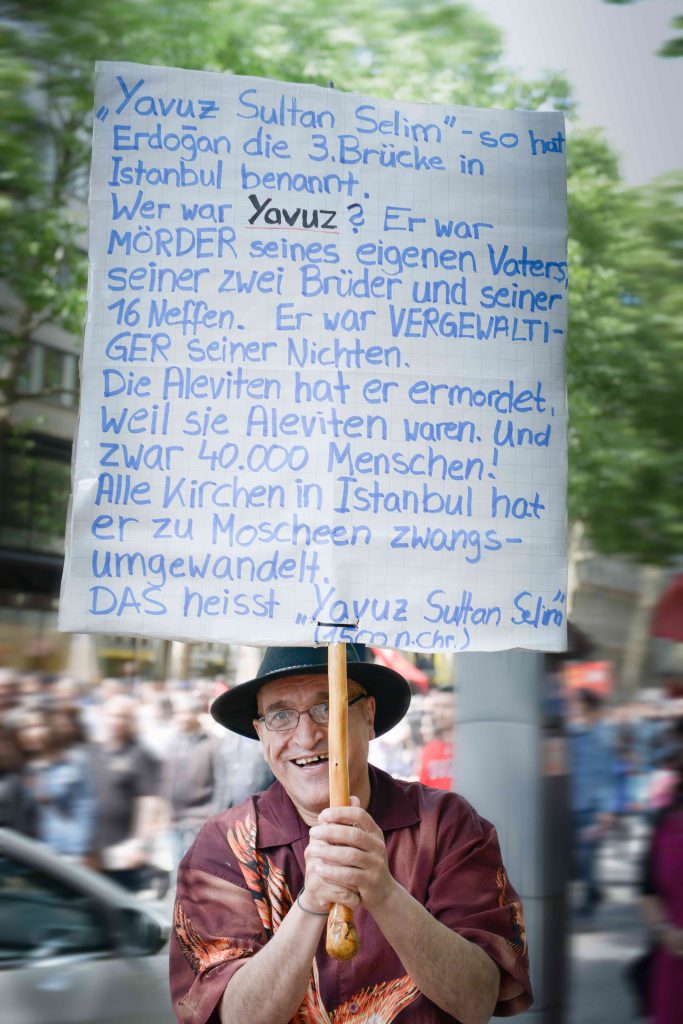 „Yavuz Sultan Selim" - so hat
Erdoğan die 3.Brücke in
Istanbul benannt.
Wer war Yavuz? Er war
MÖRDER seines eigenen Vaters,
seiner zwei Brüder und seiner
16 Neffen. Er war VERGEWALTI-
GER seiner Nichten.
Die Aleviten hat er ermordet,
weil sie Aleviten waren. Und
zwar 40.000 Menschen!
Alle Kirchen in Istanbul hat
er zu Moscheen zwangs-
umgewandelt.
DAS heisst „Yavuz Sultan Selim"
(1500 n.chr.)